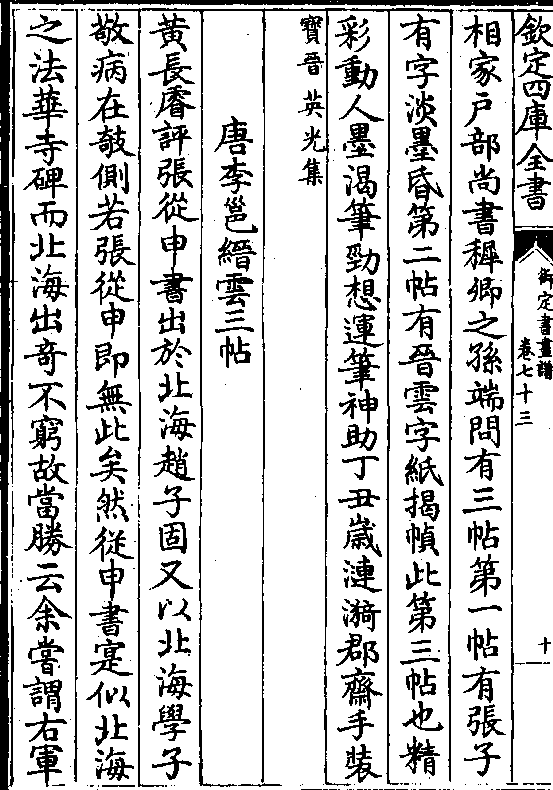 欽定四庫全書
御定書畫譜
卷七十三
十
相家戸部尚書穉卿之孫端問有三帖第一帖有張子
有字淡墨昏第二帖有晉雲字紙揭幀此第三帖也精
彩動人墨渴筆勁想運筆神助丁丑歲漣漪郡齋手裝
寶晉英光集
唐李邕縉雲三帖
黃長睿評張從申書出於北海趙子固又以北海學子
敬病在攲側若張從申即無此矣然從申書寔似北海
之法華寺碑而北海出奇不窮故當勝云余嘗謂右軍